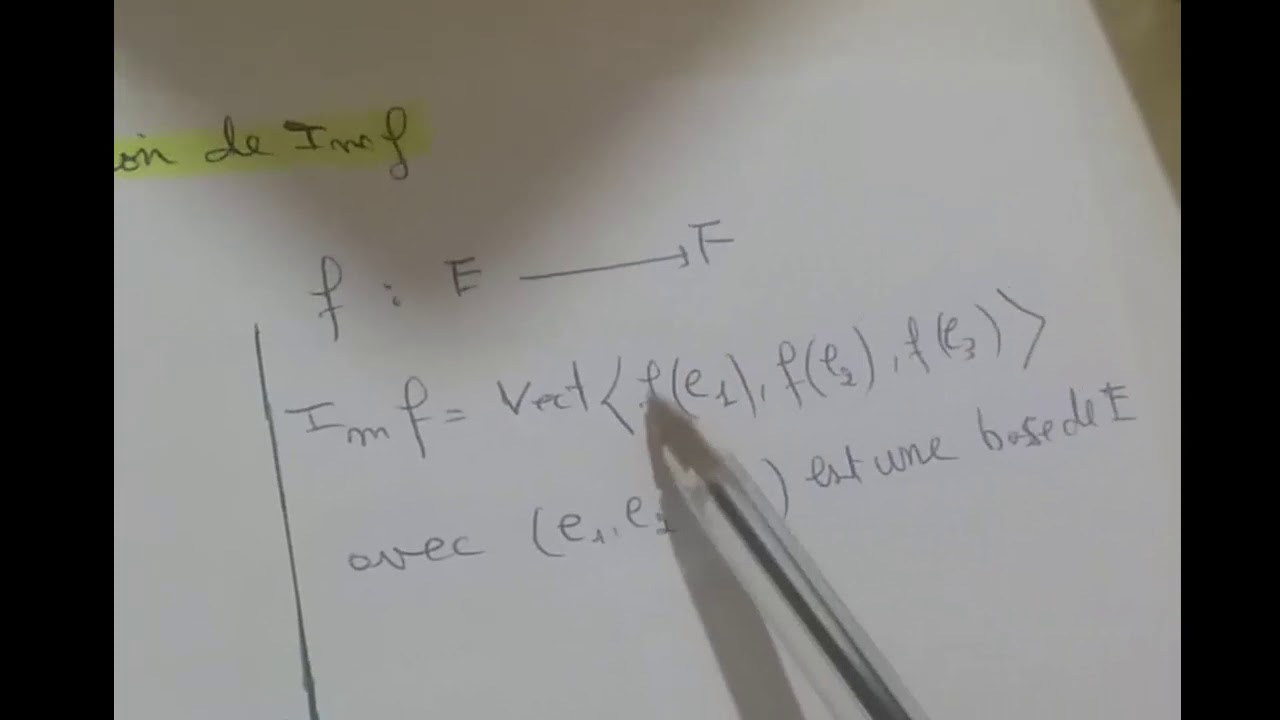 on de Im f
f : E → F
Im f = Vect⟨f(e₁), f(e₂), f(e₃)⟩
avec (e₁, e₂ ) est une base de E